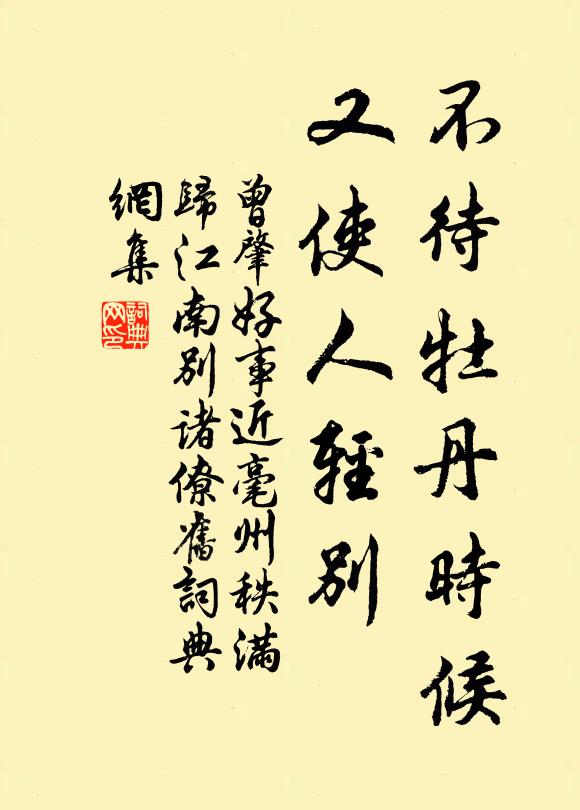 不待牡丹時候
又使人輕別
曾肇好事近亳州秩滿
歸江南別诸僚舊詞典
網集
詞典
网印